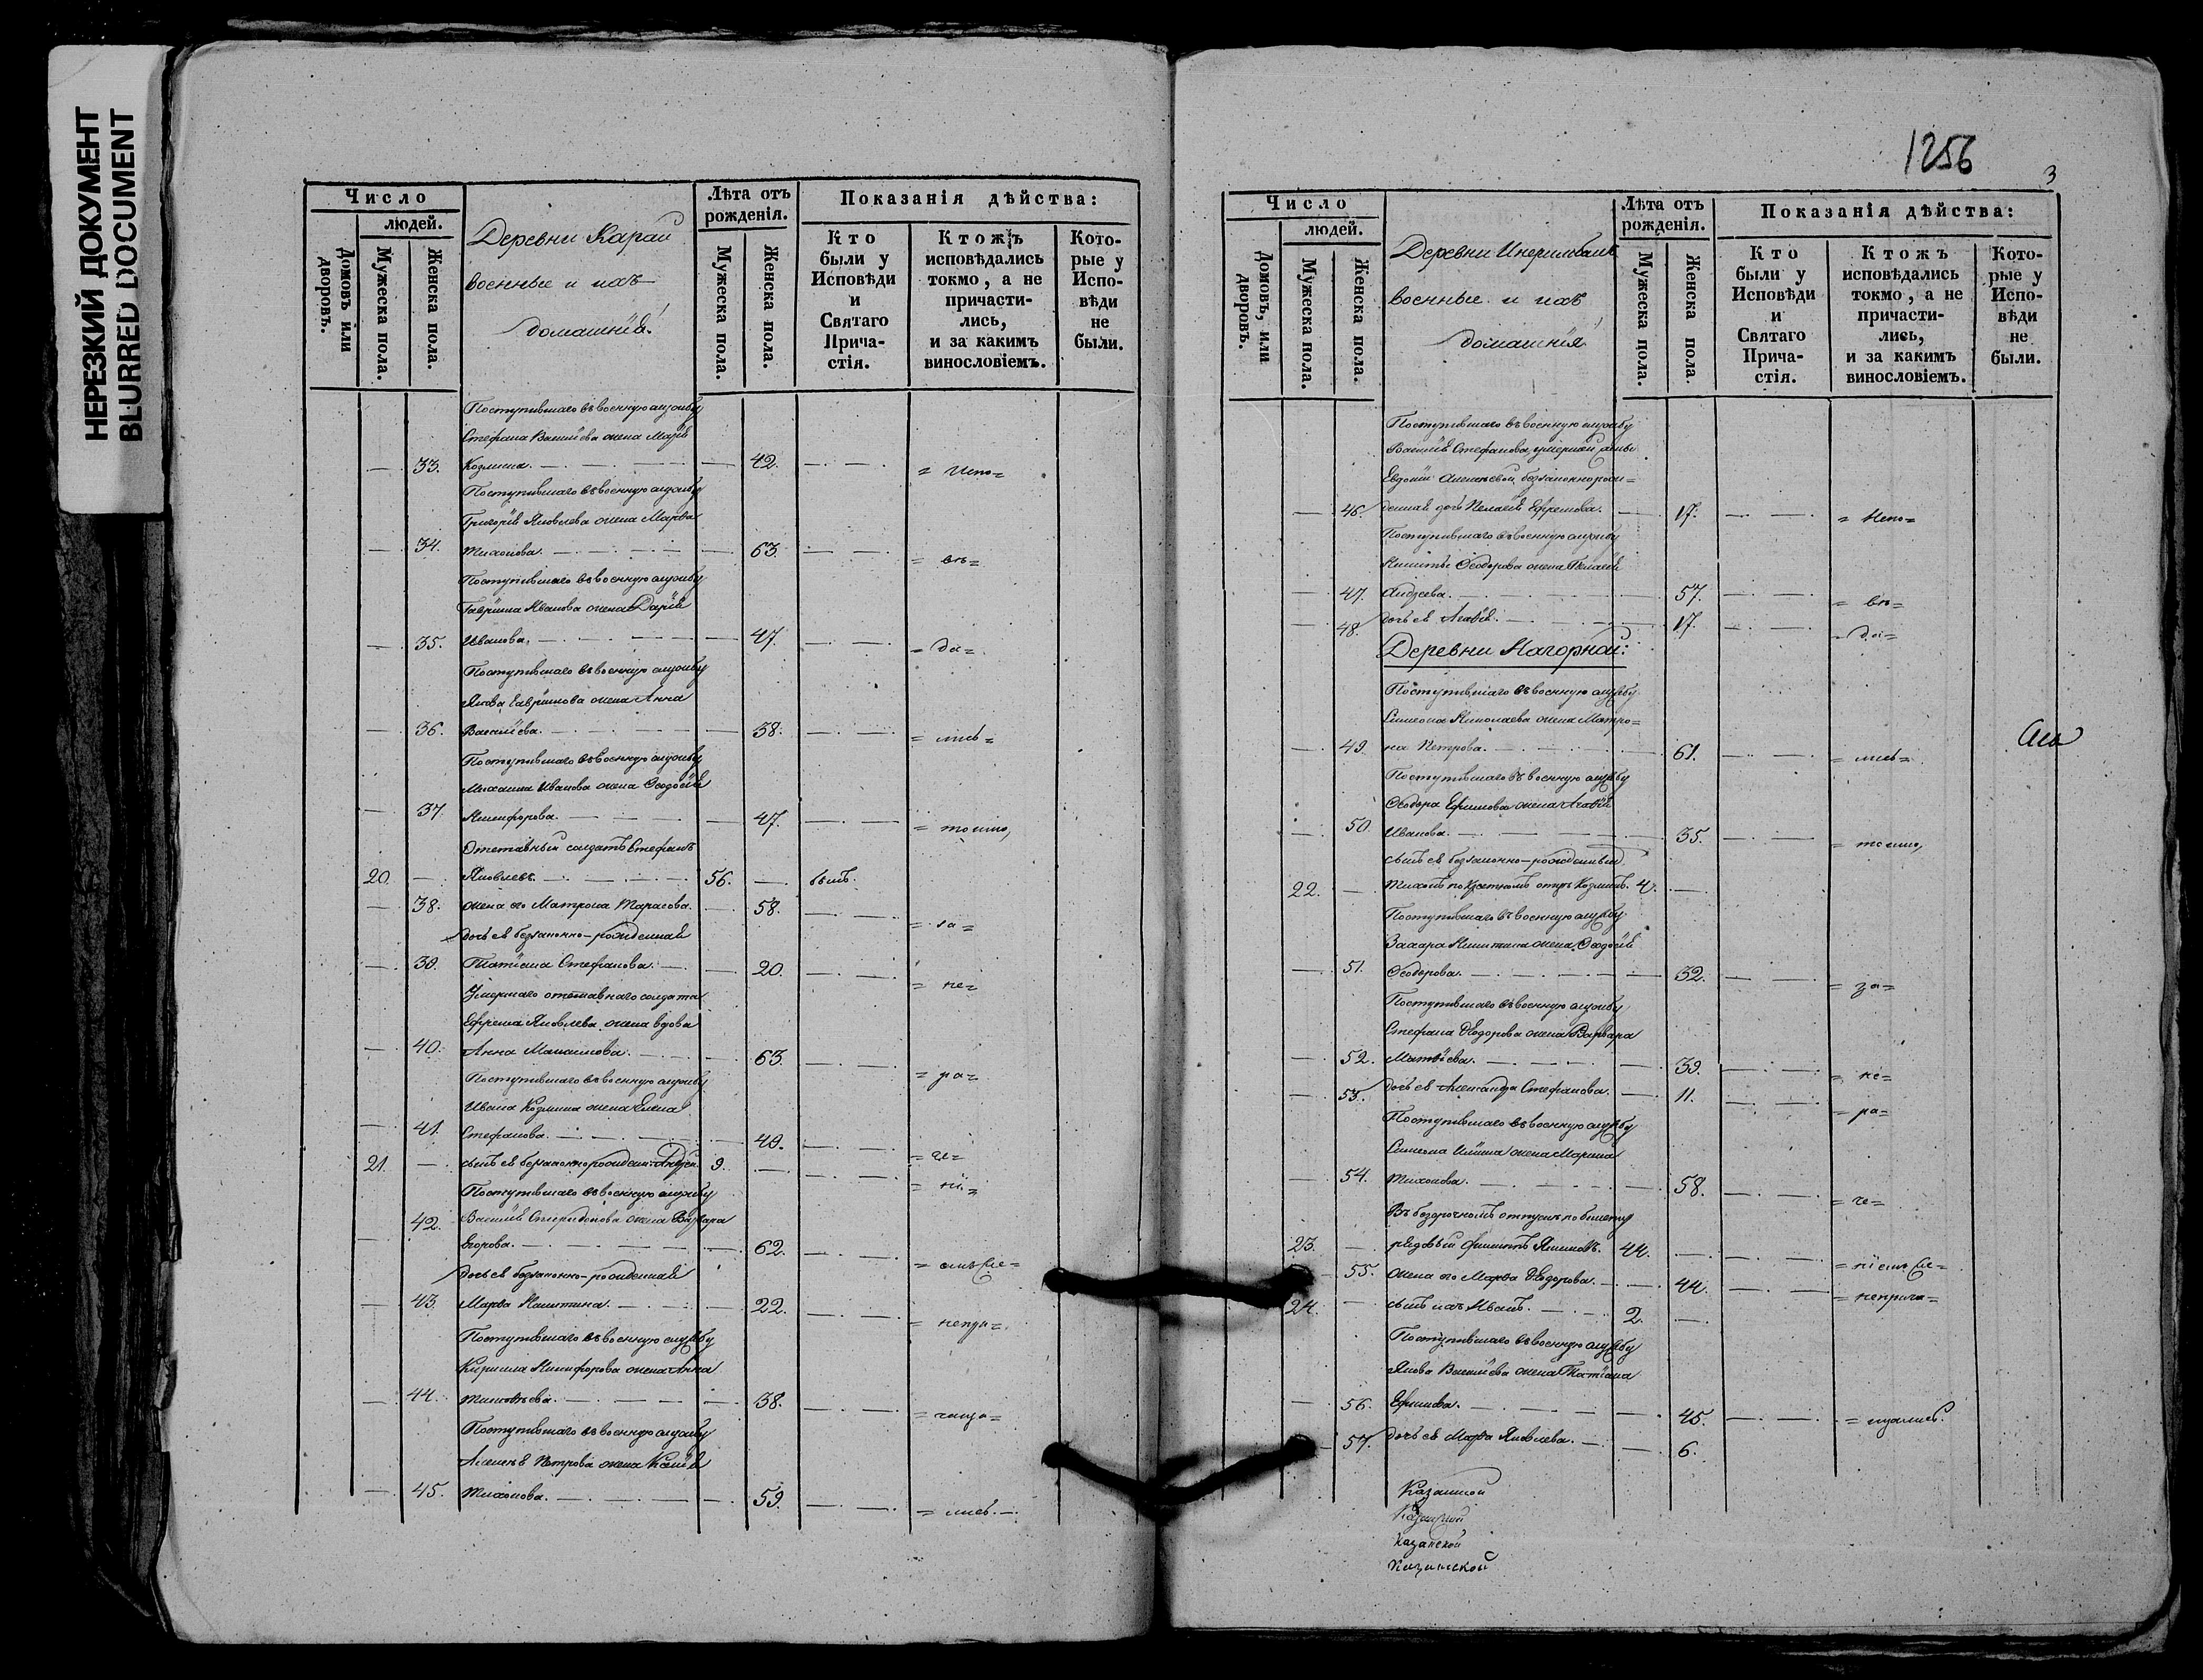 НЕРЕЗКИЙ ДОКУМЕНТ
BLURRED DOCUMENT
Число
людей.
Домовъ или дворовъ.
Мужеска пола.
Женска пола.
Деревни Караи
военные и ихъ
домашнія:
Лѣта отъ рожденія.
Мужеска пола.
Женска пола.
Показанія дѣйства:
Кто были у Исповѣди и Святаго Прича-стія.
Ктожъ исповѣдались токмо, а не причасти-лись, и за какимъ винословіемъ.
Кото-рые у Испо-вѣди не были.
Поступившаго въ военную службу
Стефана Василіева жена Марія
33. Козмина. 42. = Испо=
Поступившаго въ военную службу
Григорія Яковлева жена Марѳа
34. Тихонова. 63. = вѣ=
Поступившаго въ военную службу
Гавріила Иванова жена Дарія
35. Иванова. 47. = да=
Поступившаго въ военную службу
Якова Гаврилова жена Анна
36. Василіева. 38. = лись=
Поступившаго въ военную службу
Михаила Иванова жена Ѳеодосія
37. Никифорова. 47. = токмо,
Отставный солдатъ Стефанъ
20. Яковлевъ. 56. былъ.
38. жена его Матрона Тарасова. 58. = за=
дочь ея беззаконно-рожденная
39. Татіана Стефанова. 20. = не=
Умершаго отставнаго солдата
Ефрема Яковлева жена вдова
40. Анна 63. = ра=
Поступившаго въ военную службу
Ивана Козмина жена Елена
41. Стефанова. 49. = че=
21. сынъ ея беззаконнорожден. Андрей 9. = ні=
Поступившаго въ военную службу
42. Василія Спиридонова жена Варвара
Егорова. 62. = емъ
дочь ея беззаконно-рожденная
43. Марѳа Никитина. 22. = непри=
Поступившаго въ военную службу
Кирилла Никифорова жена Анна
44. Тимоѳеева. 38. = чаща=
Поступившаго въ военную службу
Алексѣя Петрова жена Ксенія
45. Тихонова. 59. = лись.
1256
3
Число
людей.
Домовъ, или дворовъ.
Мужеска пола.
Женска пола.
Деревни
военные и ихъ
домашнія
Лѣта отъ рожденія.
Мужеска пола.
Женска пола.
Показанія дѣйства:
Кто были у Исповѣди и Святаго Прича-стія.
Ктожъ исповѣдались токмо, а не причасти-лись, и за какимъ винословіемъ.
Кото-рые у Испо-вѣди не были.
Поступившаго въ военную службу
Василія Стефанова умершей жены
Евдокіи Алексѣевой беззаконнорож=
46. денная дочь Пелагія Ефремова. 17. = Испо=
Поступившаго въ военную службу
Никиты Ѳеодорова жена Пелагія
47. Андреева. 57. = вѣ=
48. дочь ея Агаѳія. 17. = да=
Деревни Нагорной:
Поступившаго въ военную службу
Симеона Николаева жена Матро=
49. на Петрова. 61. = лись=
Поступившаго въ военную службу
Ѳеодора Ефимова жена Агаѳія
50. Иванова. 35. = токмо,
сынъ ея беззаконно-рожденный
22. Тихонъ по крестномъ отцѣ Козминъ. 4.
Поступившаго въ военную службу
Захара Никитина жена Ѳеодосія
51. Ѳеодорова. 32. = за=
Поступившаго въ военную службу
Стефана Ѳеодорова жена Варвара
52. Матвіева. 39. = не=
53. дочь ея Александра Стефанова. 11. = ра=
Поступившаго въ военную службу
Симеона Ильина жена Марина
54. Тихонова. 58. = че=
Въ безсрочномъ отпускѣ по билету
23. рядовый Филиппъ 44. = ніемъ
55. жена его Марѳа Ѳеодорова. 44. = неприча=
24. сынъ ихъ Иванъ. 2.
Поступившаго въ военную службу
Якова Василіева жена Татіана
56. Ефимова. 45. = щались.
57. дочь ея Марѳа Яковлева. 6.
Казанской
Казанской